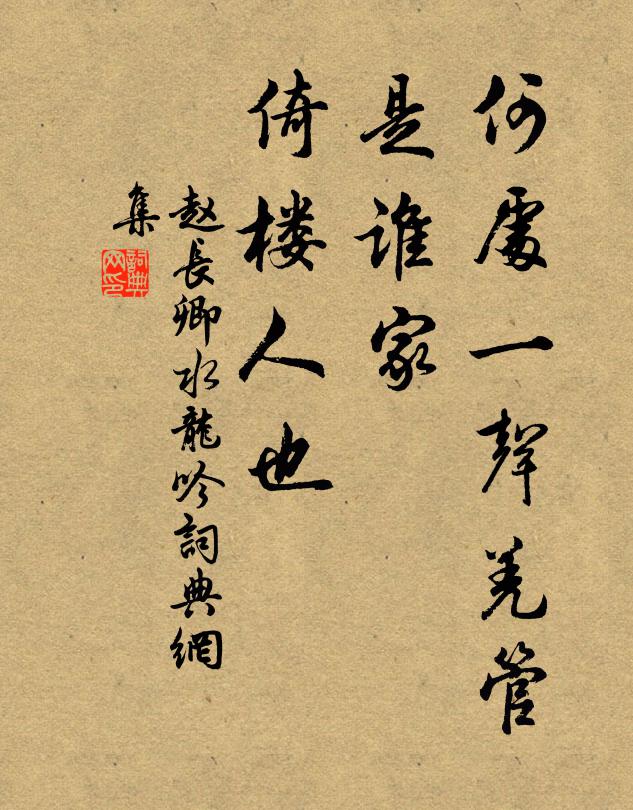 何處一聲羌管
是誰家
倚楼人也
赵長卿水龍吟詞典網
集
詞典
网印